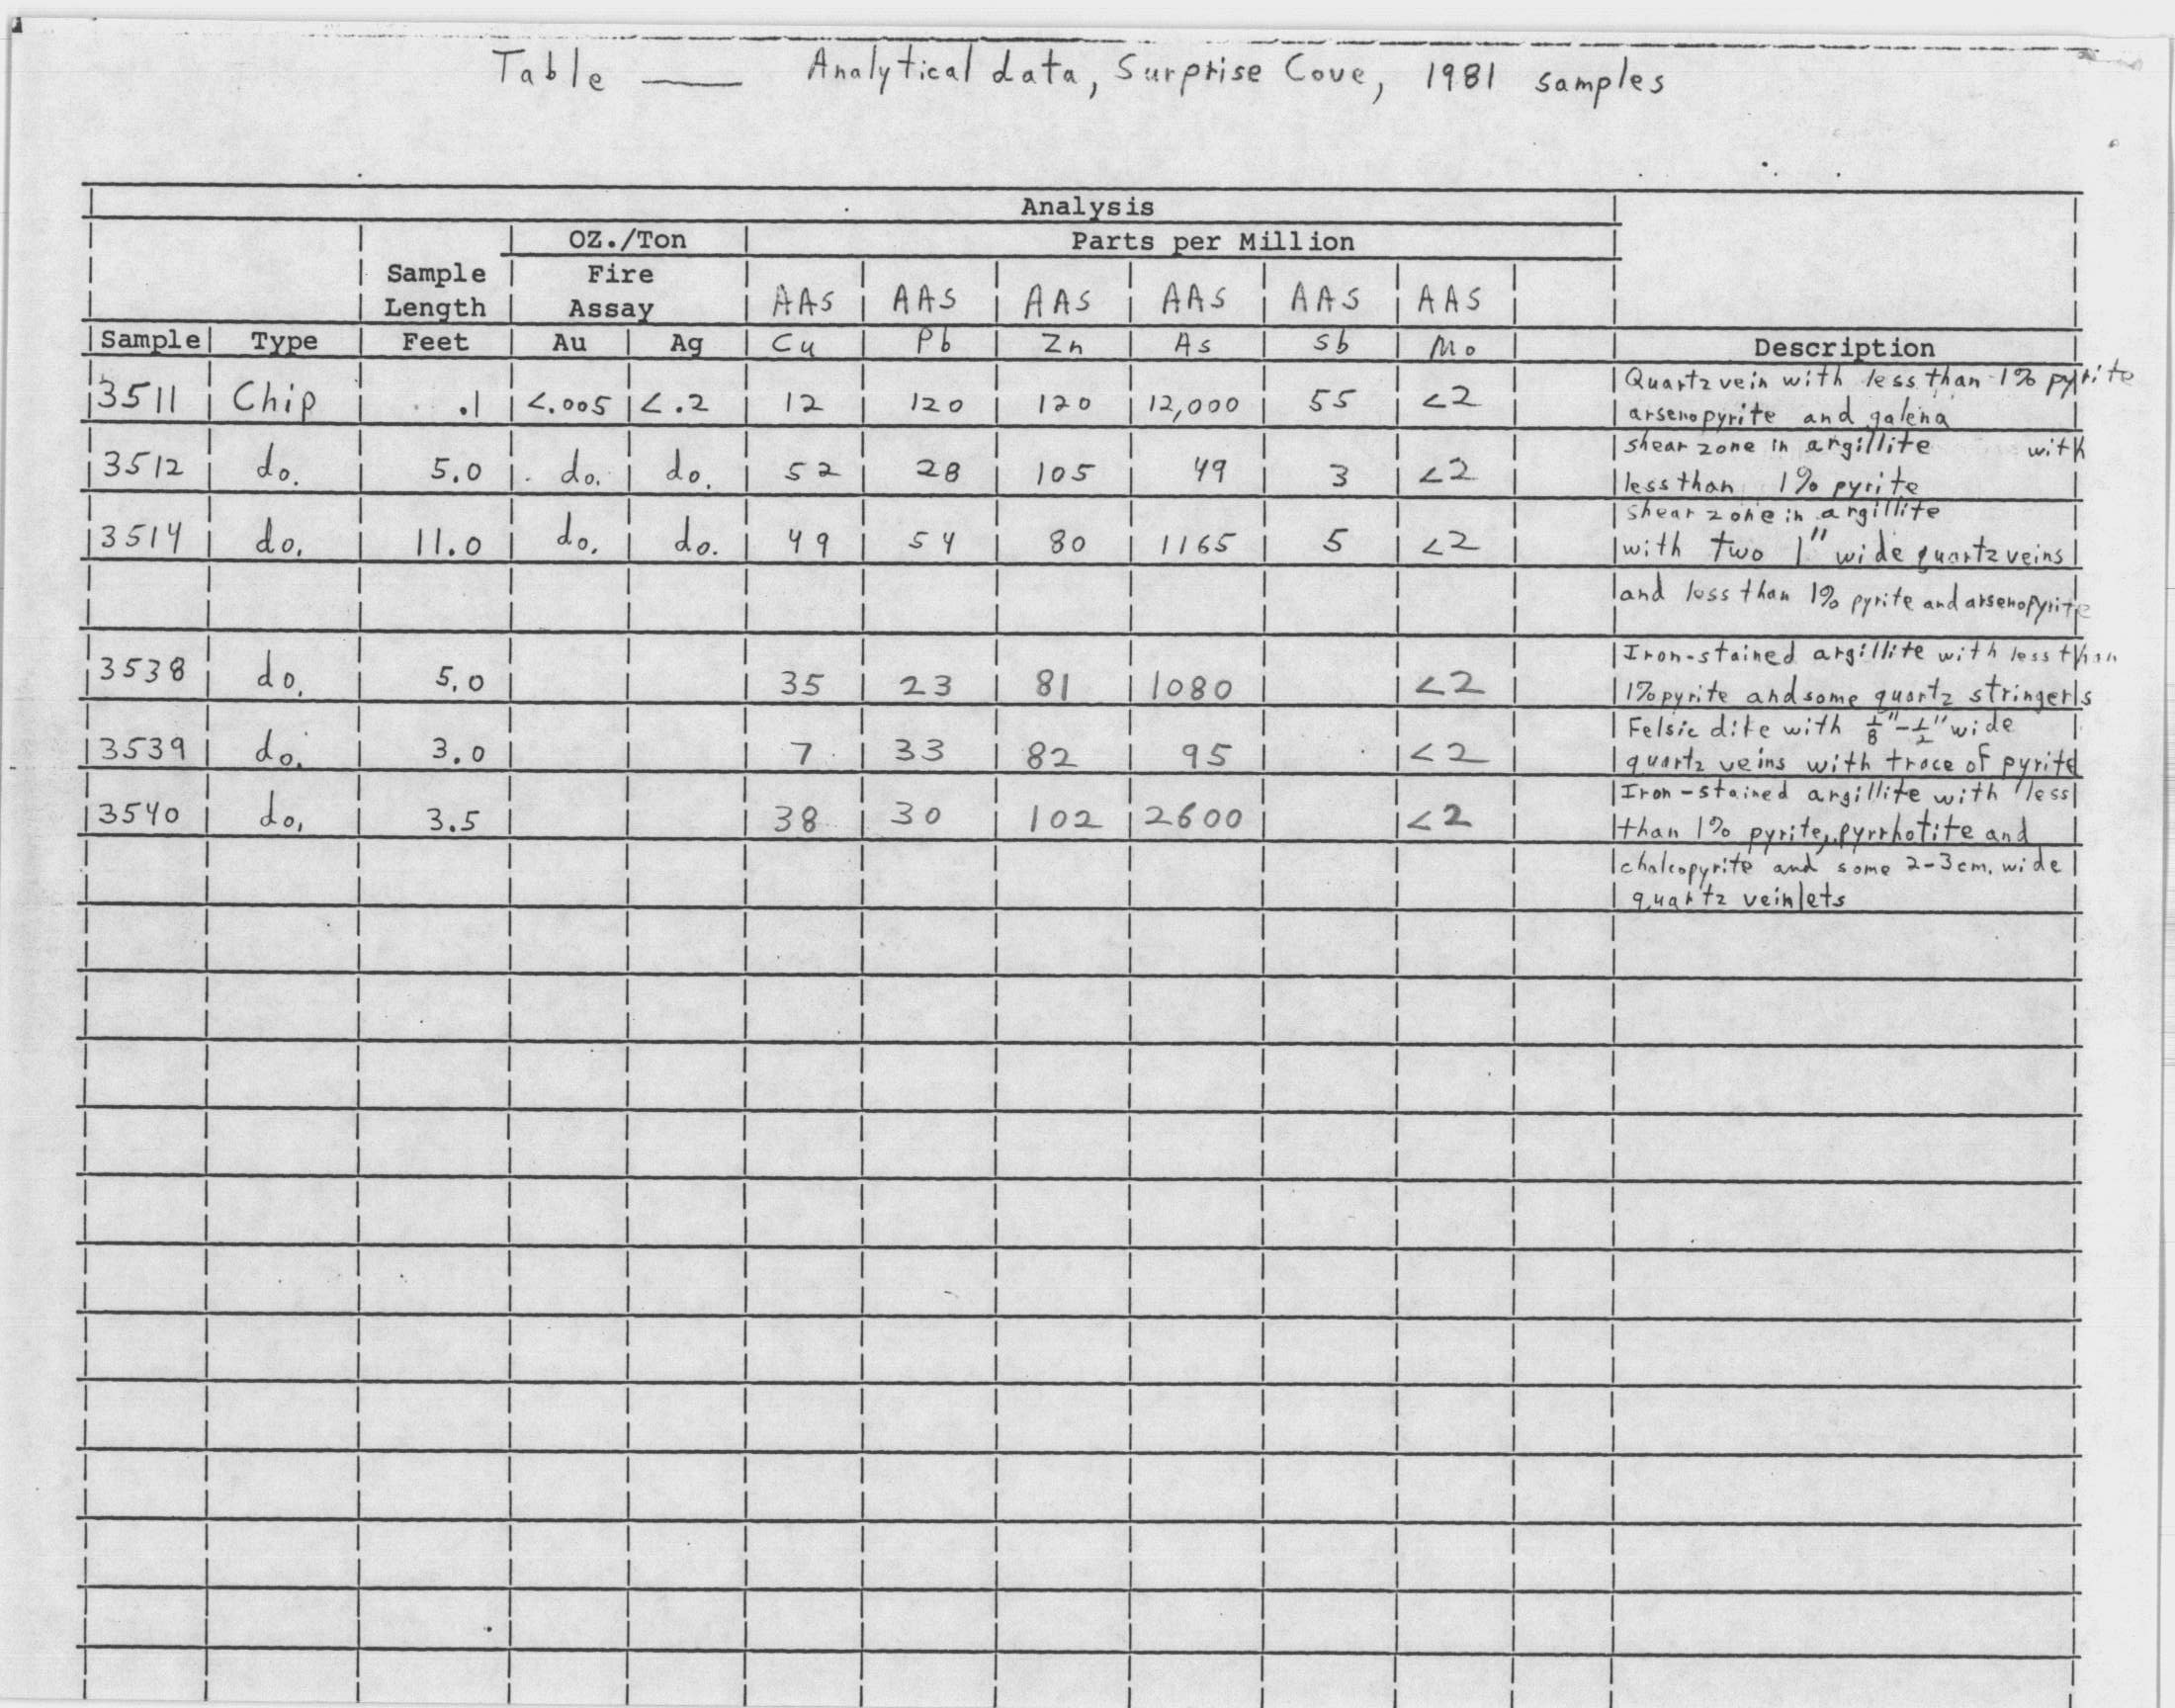 Table ___ Analytical data, Surprise Cove, 1981 samples
Analysis
OZ./Ton Parts per Million
Sample Fire
Length Assay AAS AAS AAS AAS AAS AAS
Sample Type Feet Au Ag Cu Pb Zn As Sb Mo Description
Quartz vein with less than 1% pyrite
3511 Chip .1 <.005 <.2 12 120 120 12,000 55 <2 arsenopyrite and galena
shear zone in argillite with
3512 do. 5.0 do. do. 52 28 105 49 3 <2 less than 1% pyrite
shear zone in argillite
3514 do. 11.0 do. do. 49 54 80 1165 5 <2 with two 1" wide quartz veins
and less than 1% pyrite and arsenopyrite
Iron-stained argillite with less than
3538 do. 5.0 35 23 81 1080 <2 1% pyrite and some quartz stringers
Felsic dike with 1/8"-1/2" wide
3539 do. 3.0 7 33 82 95 <2 quartz veins with trace of pyrite
Iron-stained argillite with less
3540 do. 3.5 38 30 102 2600 <2 than 1% pyrite, pyrrhotite and
chalcopyrite and some 2-3cm. wide
quartz veinlets